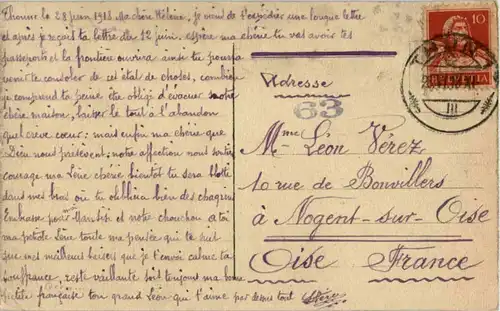 Thonne le 28 juin 1918 Ma chère Hélène, je viens de t'expédier une longue lettre
et après je reçois ta lettre du 12 juin. espère ma chérie tu vas avoir tes
passeports et la frontière ouvrira ainsi tu pourra
venir te consoler de cet état de choses, combien
je comprend ta peine être obligé d'évacuer notre
chère maison, laisser le tout à l'abandon
quel crève cœur: mais enfin ma chérie que
Dieu nous préserve: notre affection nous
courage ma Lène chérie bientôt tu sera blotte
dans mes bras où tu oubliera bien des chagrins
Embrasse pour et notre chouchou a toi
ma petite Lène toute ma pensée que te
que mes meilleurs baisers que je t'envoi calme ta
souffrance, reste vaillante soit toujours ma bonne
petite française ton grand Léon qui t'aime par dessus tout
Adresse
63
Mme Léon Vérez
10 rue de Bonvillers
à Nogent-sur-Oise
Oise France
10
HELVETIA
III